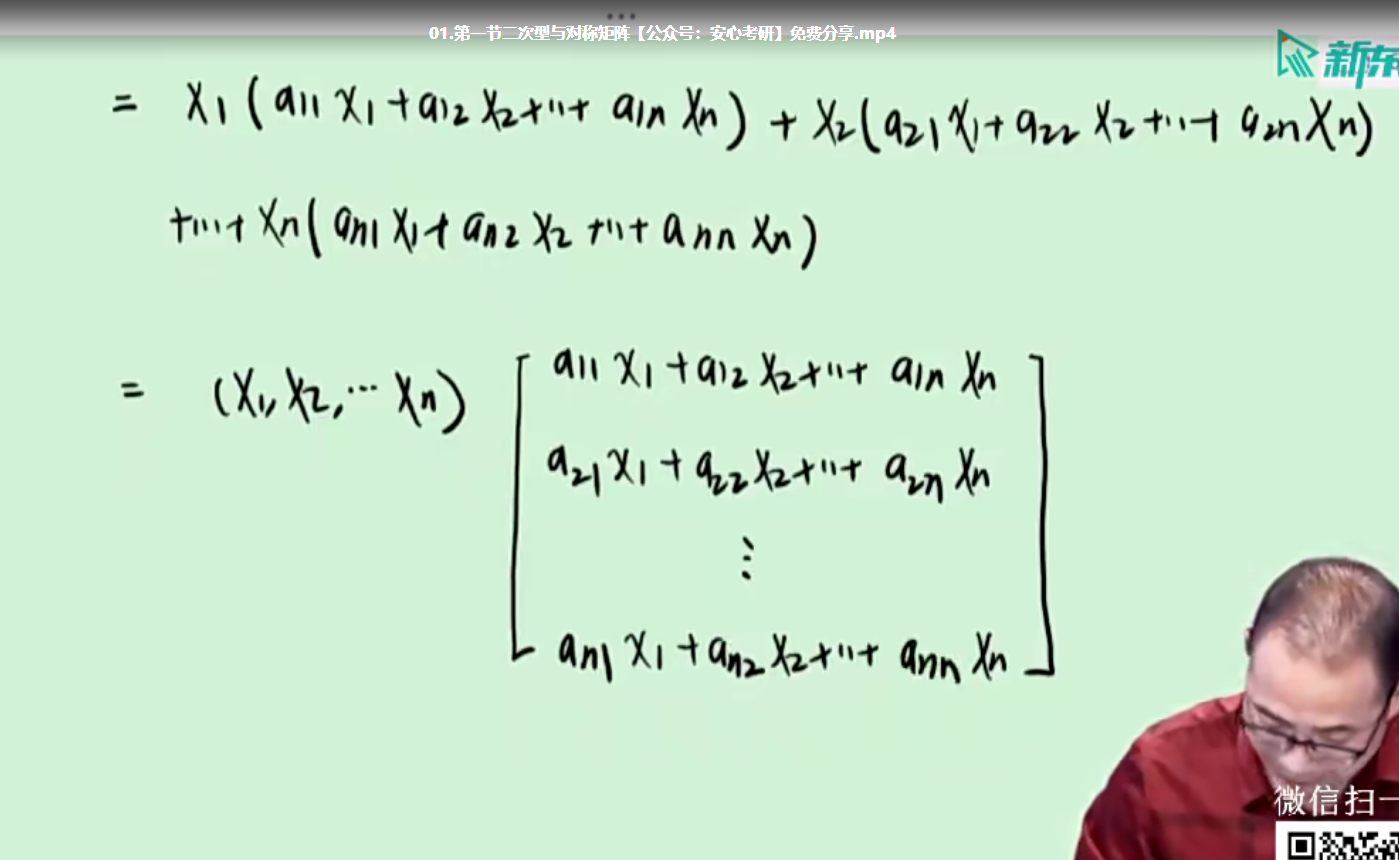 01.第一节二次型与对称矩阵【公众号：安心考研】免费分享.mp4
新东
= x₁(a₁₁x₁+a₁₂x₂+···+a₁ₙxₙ) + x₂(a₂₁x₁+a₂₂x₂+···+a₂ₙxₙ)
+···+xₙ(aₙ₁x₁+aₙ₂x₂+···+aₙₙxₙ)
= (x₁,x₂,···xₙ) [ a₁₁x₁+a₁₂x₂+···+a₁ₙxₙ
a₂₁x₁+a₂₂x₂+···+a₂ₙxₙ
⋮
aₙ₁x₁+aₙ₂x₂+···+aₙₙxₙ ]
微信扫一